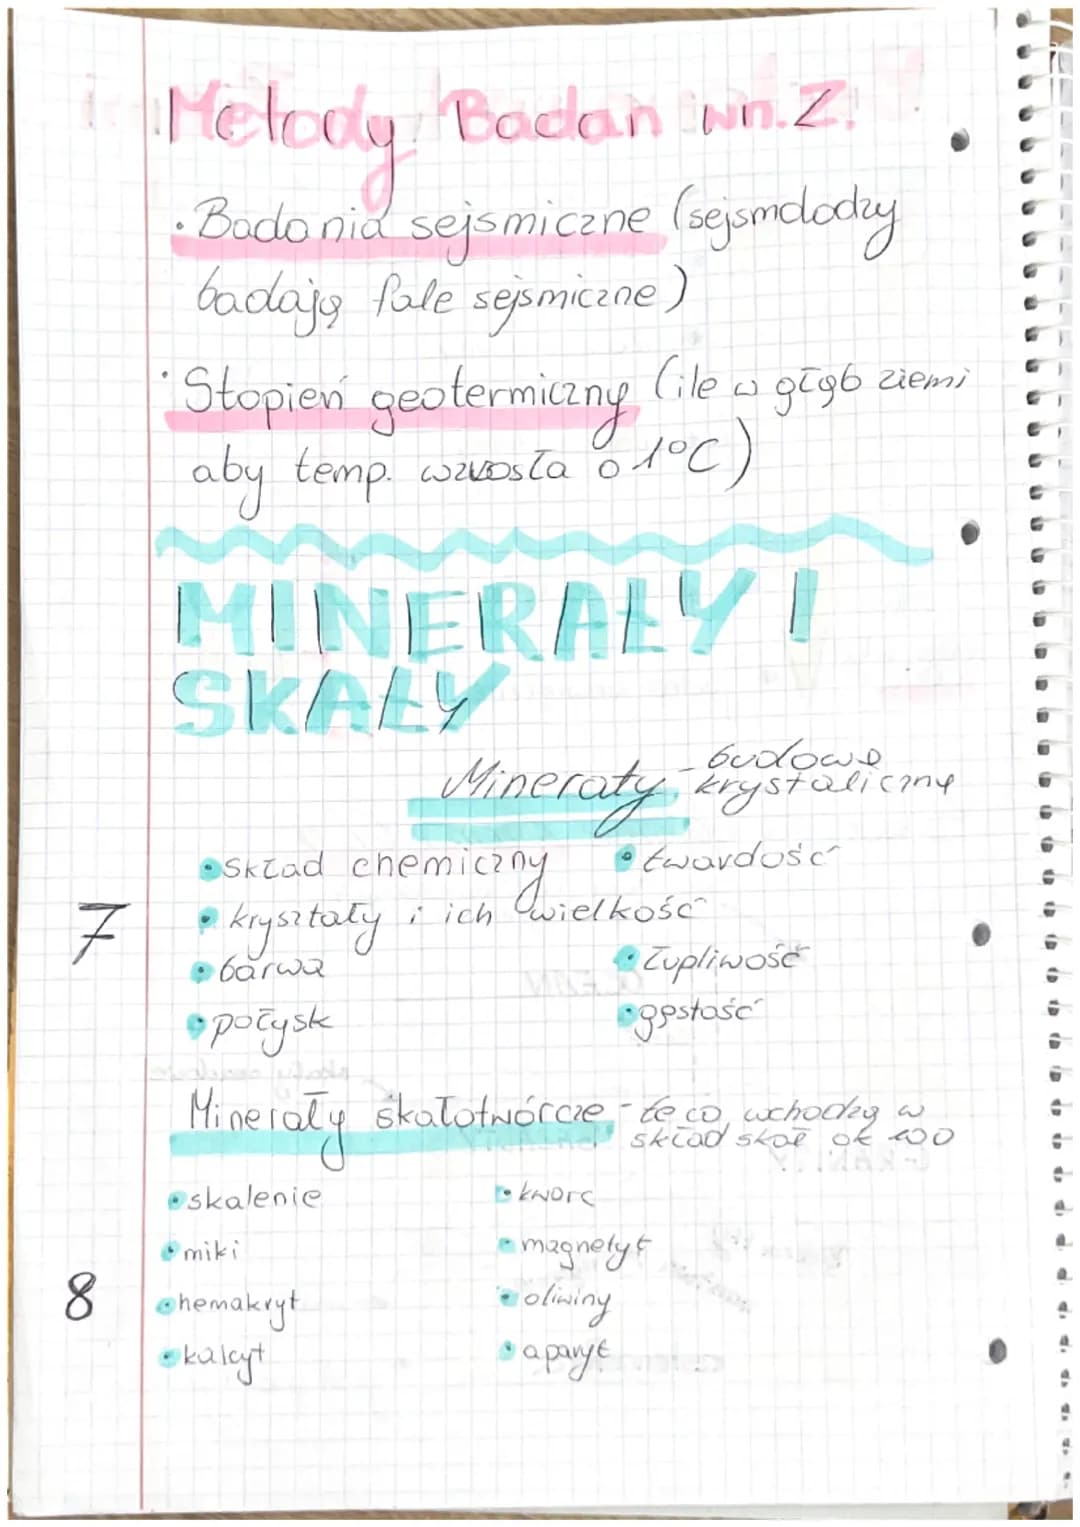 Metody Badań wn. Z.
• Badania sejsmiczne (sejsmolodzy
badają fale sejsmiczne)
• Stopień geotermiczny (ile w głąb ziemi
aby temp. wzrosła o 1°C)
MINERAŁY I
SKAŁY
Minerały - budowę
krystaliczną
• skład chemiczny • twardość
• kryształy i ich wielkość
7
• barwa • łupliwość
• połysk • gęstość
Minerały skałotwórcze - te co wchodzą w
skład skał ok 200
• skalenie • kwarc
• miki • magnetyt
8
• hemakryt • oliwiny
• kalcyt • apatyt